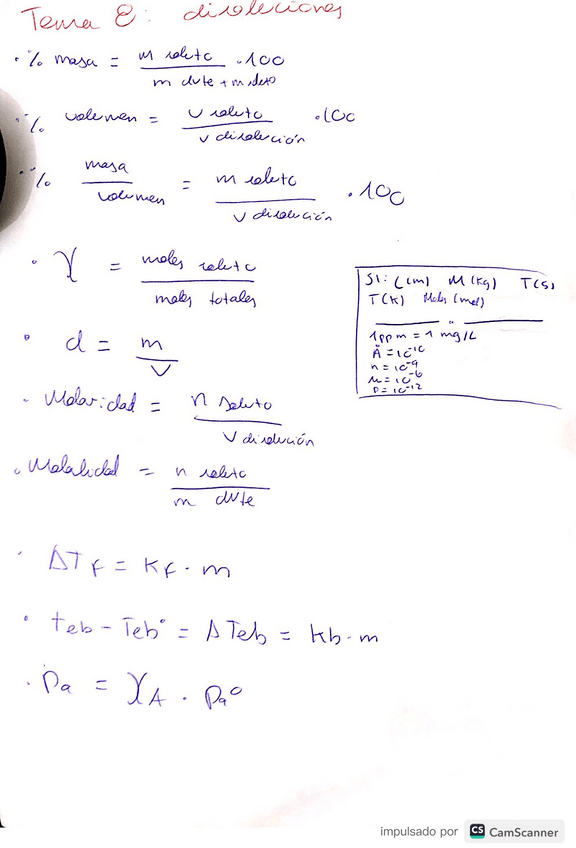 Tema 8: disoluciones
· % masa = m soluto / m dvte + m sluto · 100
· % volumen = v soluto / v disolución · 100
· % masa / volumen = m soluto / v disolución · 100
· χ = moles soluto / moles totales
· d = m / v
· Molaridad = n soluto / v disolución
· Molalidad = n soluto / m dvte
· ΔTf = Kf · m
· teb - Teb° = ΔTeb = kb · m
· Pa = χA · Pa°
SI: L(m) M(kg) T(s)
T(K) Moles (mol)
1ppm = 1 mg/L
Å = 10⁻¹⁰
n = 10⁻⁹
μ = 10⁻⁶
p = 10⁻¹²
impulsado por CS CamScanner